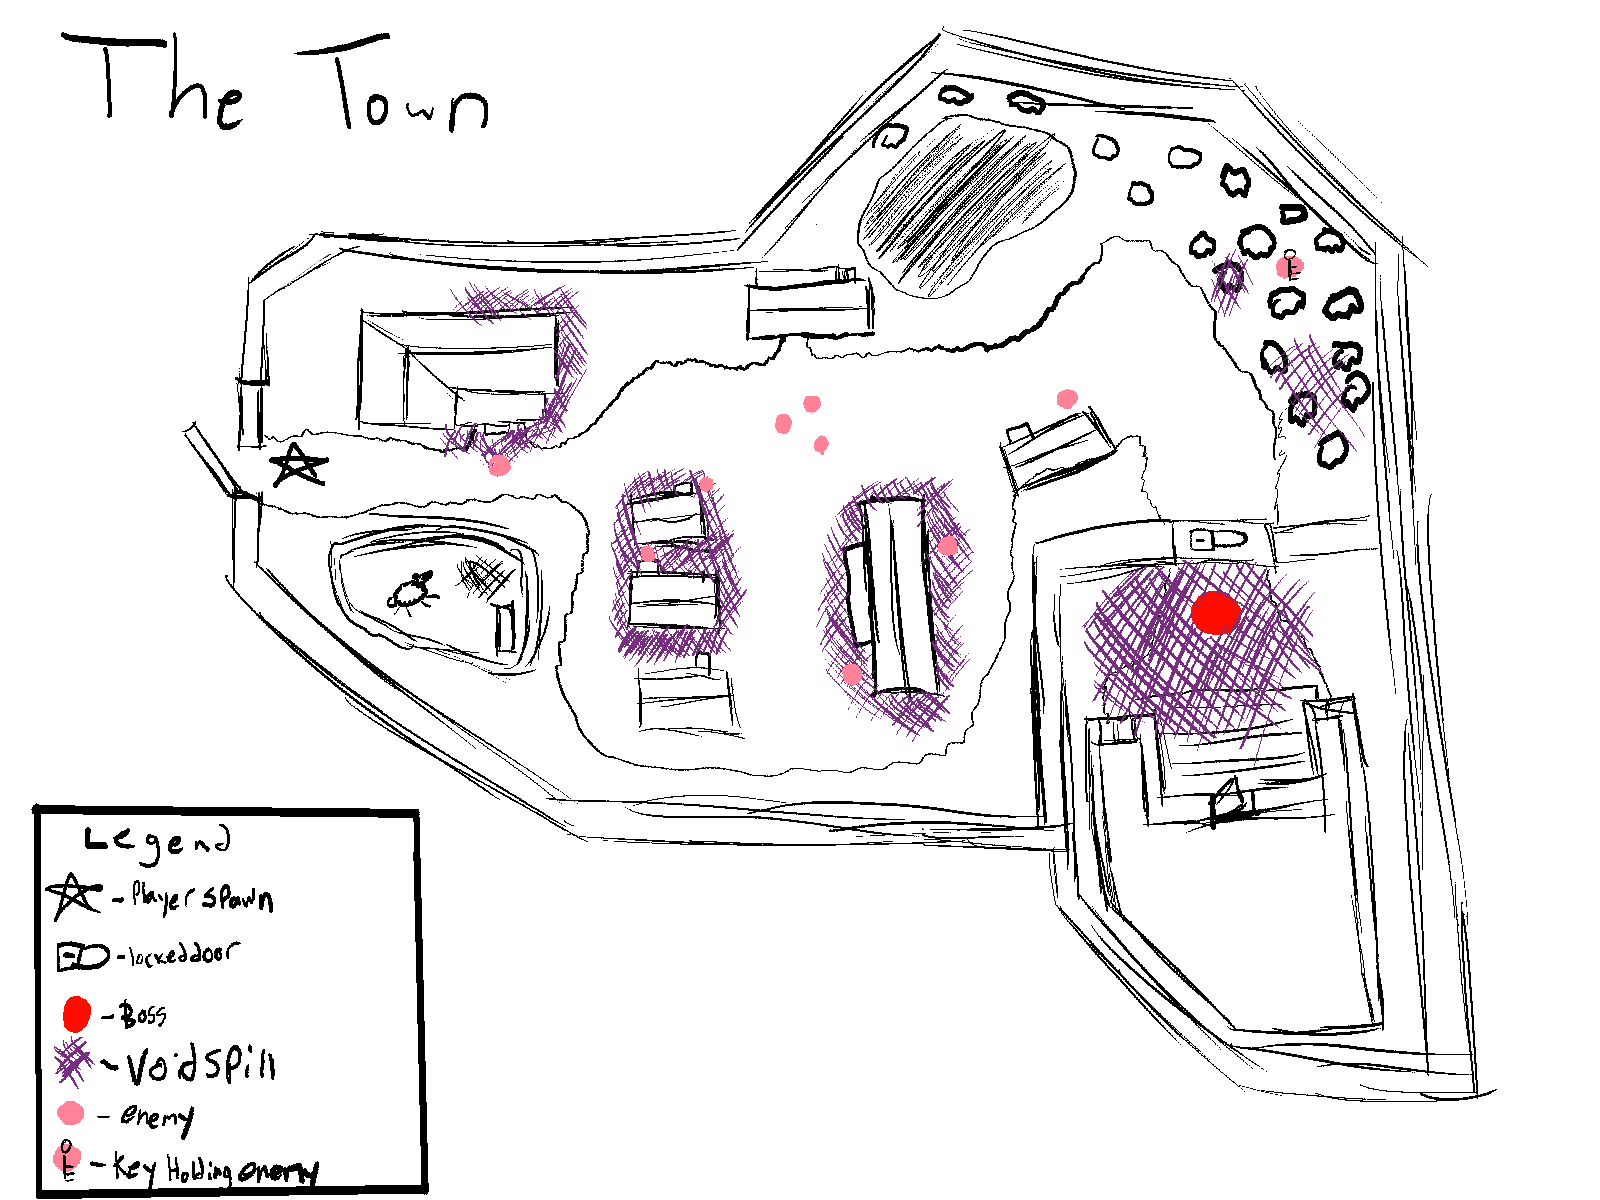 The Town
Legend
- Player Spawn
- locked door
- Boss
- Void Spill
- enemy
- Key Holding enemy